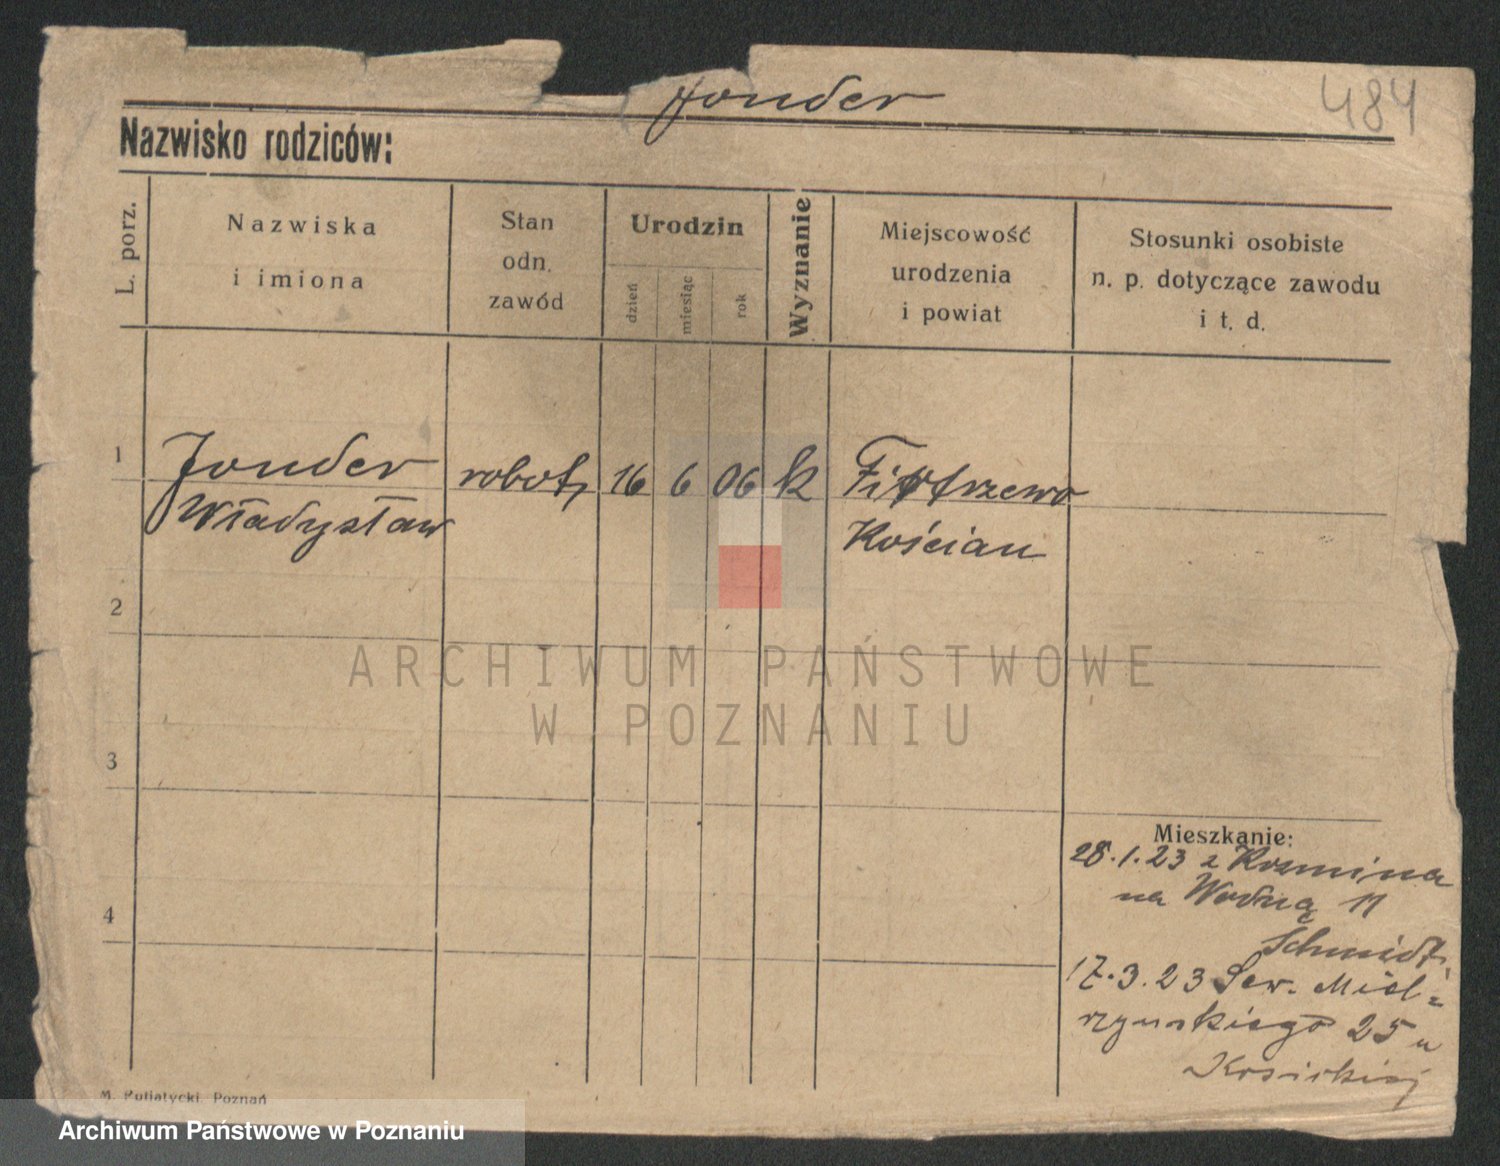 Jonder
484
Nazwisko rodziców:
L. porz.
Nazwiska
i imiona
Stan
odn.
zawód
Urodzin
dzień
miesiąc
rok
Wyznanie
Miejscowość
urodzenia
i powiat
Stosunki osobiste
n. p. dotyczące zawodu
i t. d.
1
Jonder robot. 16 6 06 k
Władysław Kościan
2
ARCHIWUM PAŃSTWOWE
W POZNANIU
3
4
Mieszkanie:
28.1.23 z Kozmina
na Wodną 11
Schmidt.
17.3.23 Sew. Miel-
rzynskiego 25 u
M. Putiatycki. Poznań
Archiwum Państwowe w Poznaniu